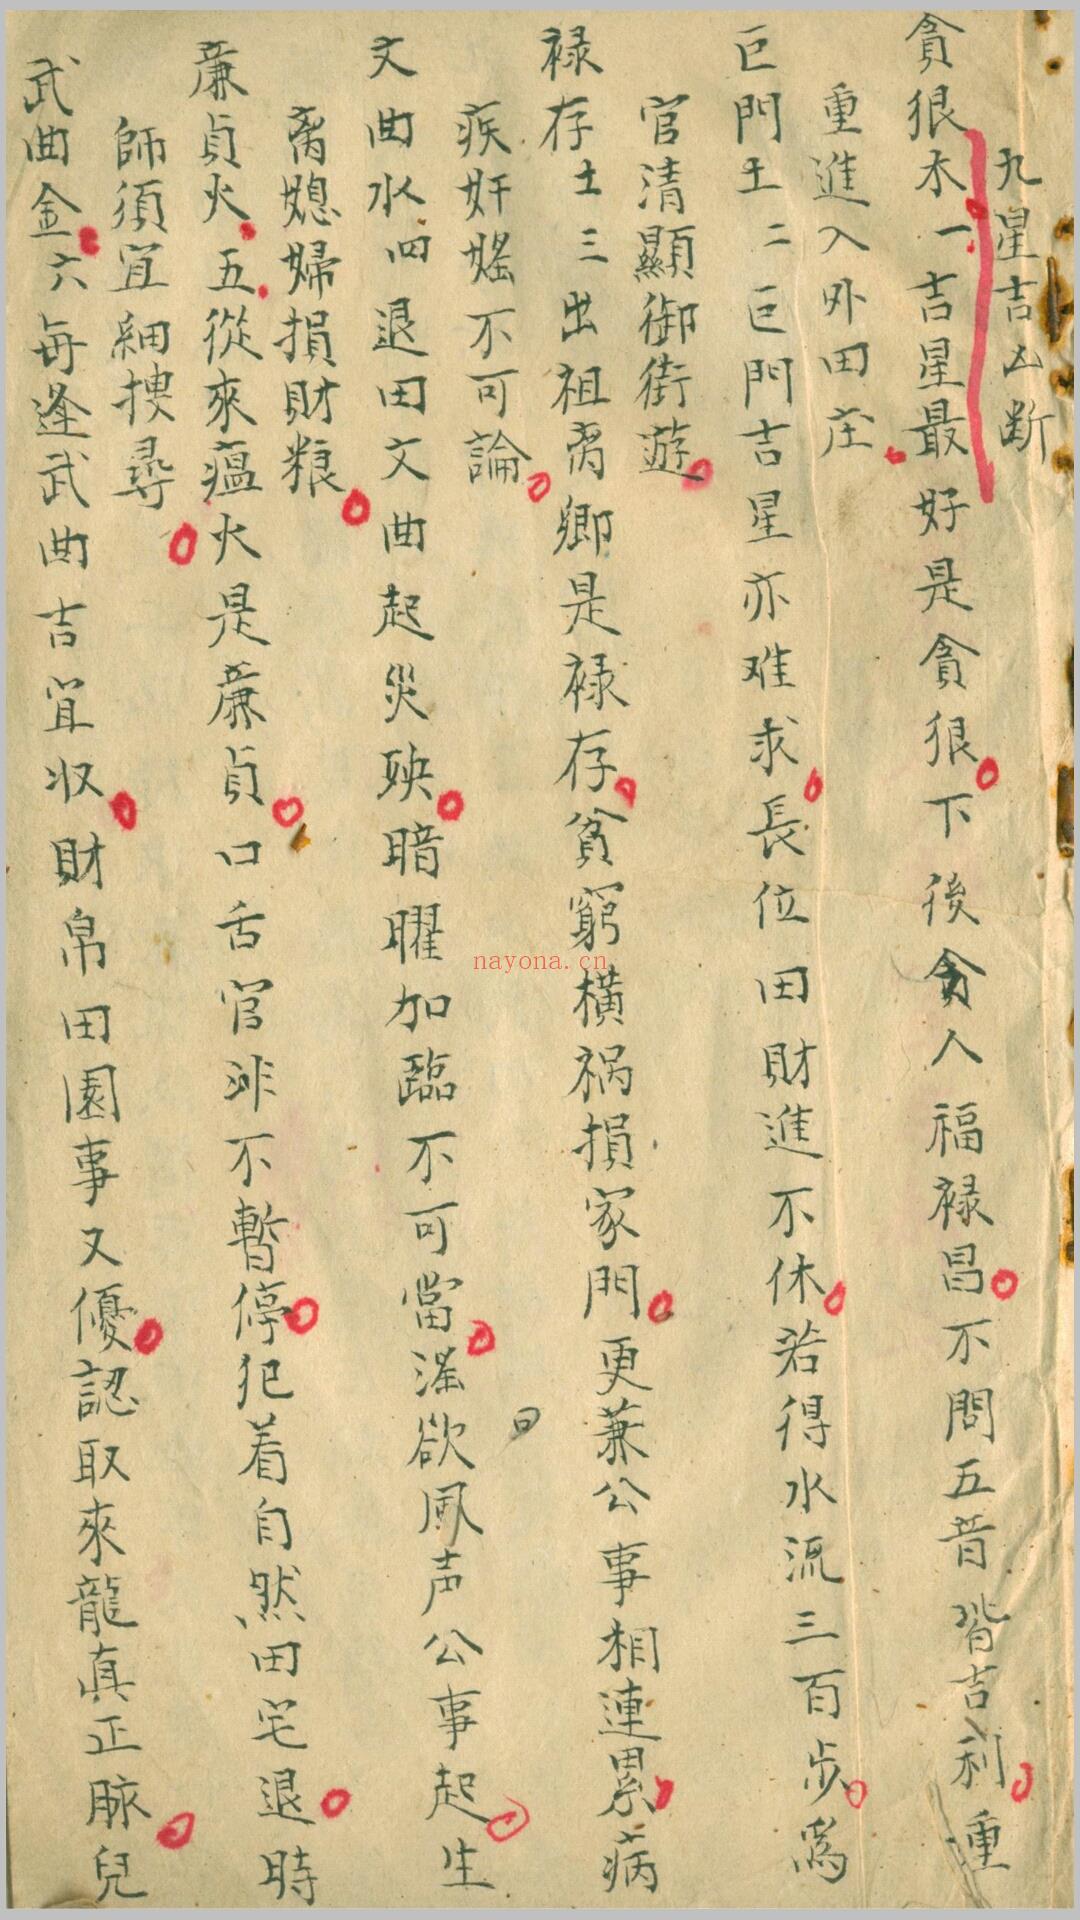 九星吉凶断
貪狠木一吉星最好是貪狠下後貪人福禄昌不問五音皆吉利重
重進入外田庄
巨門土二巨門吉星亦难求長位田財進不休若得水流三百步為
官清顯御街遊
禄存土三出祖离鄉是禄存貧窮橫禍損家門更蒹公事相連累病
疾奸媱不可論
文曲水四退田文曲起災殃暗曜加臨不可當滛欲風声公事起生
离媳婦損財粮
亷貞火五從來瘟火是亷貞口舌官非不暫停犯着自然田宅退時
師須宜細搜尋
武曲金六每逢武曲吉宜収財帛田園事又優認取來龍真正脉兒
nayona.cn